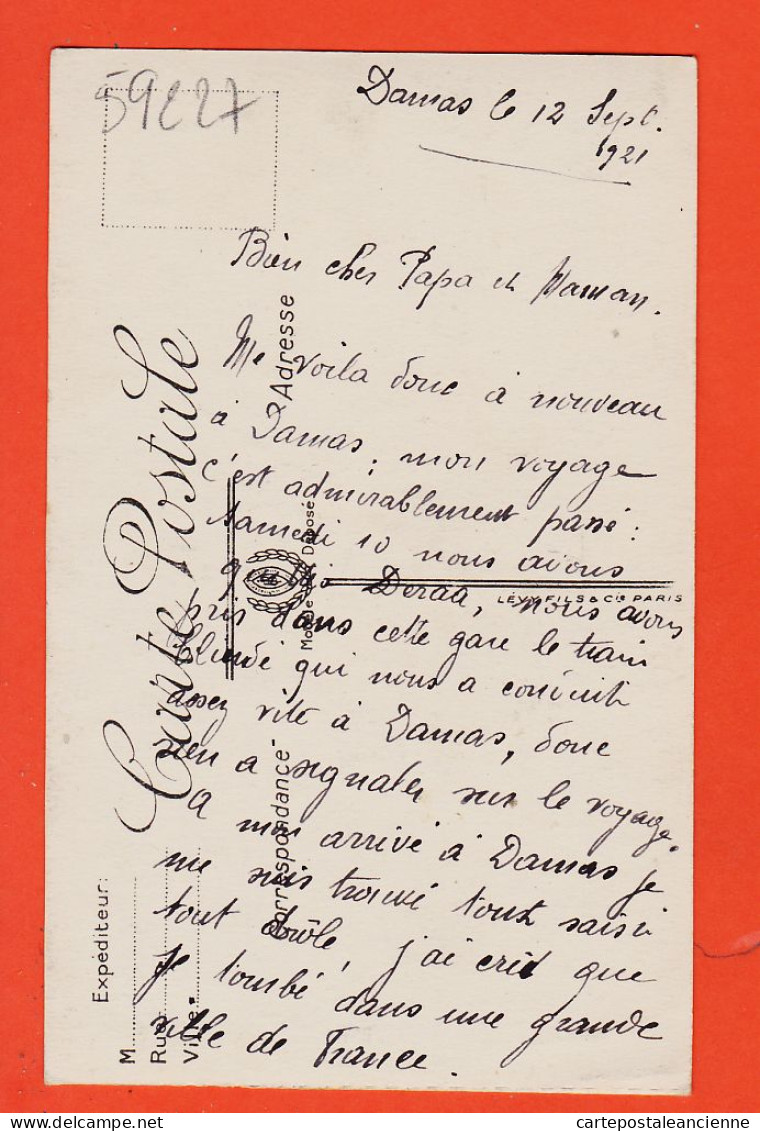 59227
Damas le 12 Sept.
1921
Bien cher Papa et Maman.
Me voila donc à nouveau
à Damas, mon voyage
c'est admirablement passé :
Samedi 10 nous avons
quitté Deraa, nous avons
pris dans cette gare le train
blindé qui nous a conduit
assez vite à Damas, donc
rien a signaler sur le voyage.
A mon arrivé à Damas je
me suis trouvé tout saisi
tout drôle, j'ai crut que
je tombé dans une grande
ville de France.
Carte Postale
Adresse
Correspondance
Modèle Déposé
LÉVY FILS & Cie PARIS
Expéditeur:
M
Rue
Ville
delcampe.net
cartepostaleancienne